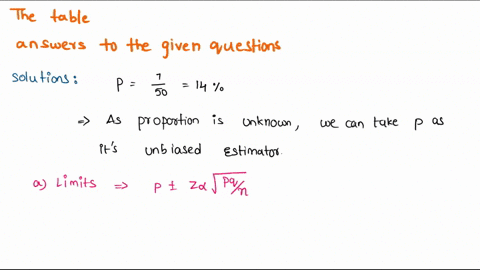 The table
answers to the given questions
solutions: P = 7/50 = 14 %
=> As proportion is unknown, we can take p as
it's unbiased estimator.
a) Limits => P ± Zα √(pq/n)